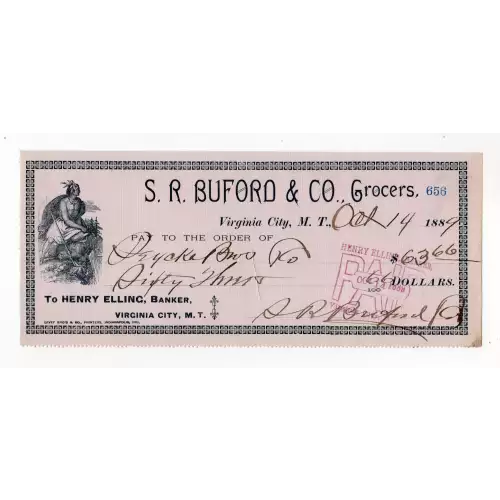 S. R. BUFORD & CO., Grocers, 656
Virginia City, M. T., Oct 14 1889
PAY TO THE ORDER OF
Bros Co $63 66
Sixty Three 66/100 DOLLARS.
HENRY ELLING
PAID
TO HENRY ELLING, BANKER,
VIRGINIA CITY, M. T.
S R Buford Co